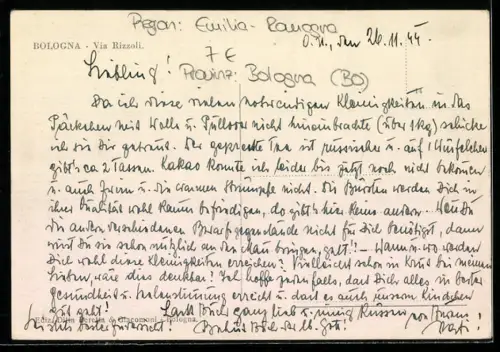 Region: Emilia-Romagna
BOLOGNA - Via Rizzoli.
7 €
O.U., den 26.11.44
Liebling!
Provinz: Bologna (BO)
Da ich diese vielen notwendigen Kleinigkeiten in das
Päckchen mit Wolle u. Pullover nicht hineinbrachte (über 1 kg) schicke
ich sie Dir getrennt. Der gepresste Tee ist russischer u. auf 1 Würfelchen
gibt's ca 2 Tassen. Kakao konnte ich leider bis jetzt noch nicht bekommen
u. auch Zwirn u. die warmen Strümpfe nicht. Die Bürsten werden Dich in
ihrer Qualität wohl kaum befriedigen, do gibt's hier keine andern. Wenn Du
die andern verschiedenen Bedarfsgegenstände nicht für Dich benötigst, dann
wirst Du sie schon nützlich an den Mann bringen, gelt! - Wann u. wo werden
Dich wohl diese Kleinigkeiten erreichen? Vielleicht schon in bei meinen
Lieben, wäre dies denkbar! Ich hoffe jedenfalls, dass Dich alles in bester
Gesundheit u. erreicht u. dass es auch unserm Kindchen
gut geht! Lasst Euch ganz lieb u. innig küssen von Eurem
Vati!